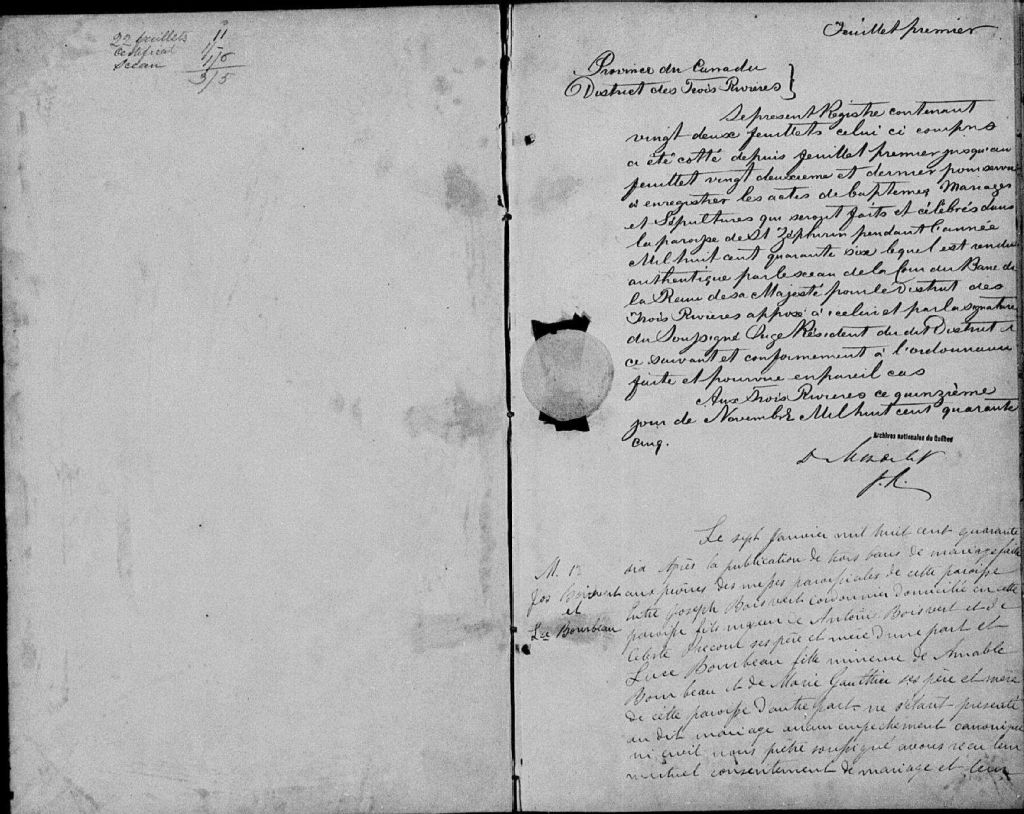 22 feuillets 11
Certificat 1/6
Sceau 3/5
Feuillet premier
Province du Canada
District des Trois Rivières }
Le present Régistre contenant
vingt deux feuillets celui ci compris
a été cotté depuis feuillet premier jusqu'au
feuillet vingt deuxieme et dernier pour servir
à enregistrer les actes de baptemes, Mariages
et Sépultures qui seront faits et célébrés dans
la paroisse de St Zéphirin pendant l'année
Mil huit cent quarante six lequel est rendu
authentique par le sceau de la Cour du Banc de
la Reine de sa Majesté pour le District des
Trois Rivières apposé à icelui et par la signature
du Soussigné Juge Résident du dit District
ce suivant et conformement à l'ordonnance
faite et pourvue en pareil cas
Aux Trois Rivieres ce quinzième
jour de Novembre Mil huit cent quarante
cinq.
Archives nationales du Québec
D Mondelet
J. R.
Le sept Janvier mil huit cent quarante
six Après la publication de trois bans de mariage faite
M. 1
Jos Boisvert
et
Lce Bourbeau
aux prônes des messes paroissiales de cette paroisse
Entre Joseph Boisvert cordonnier domicilié en cette
paroisse fils majeur de Antoine Boisvert et de
Celeste Precourt ses père et mere d'une part et
Luce Bourbeau fille mineure de Amable
Bourbeau et de Marie Gauthier ses père et mere
de cette paroisse d'autre part ne s'étant presenté
au dit mariage aucun empechement canonique
ni civil nous prêtre soussigné avons reçu leur
mutuel consentement de mariage et leur